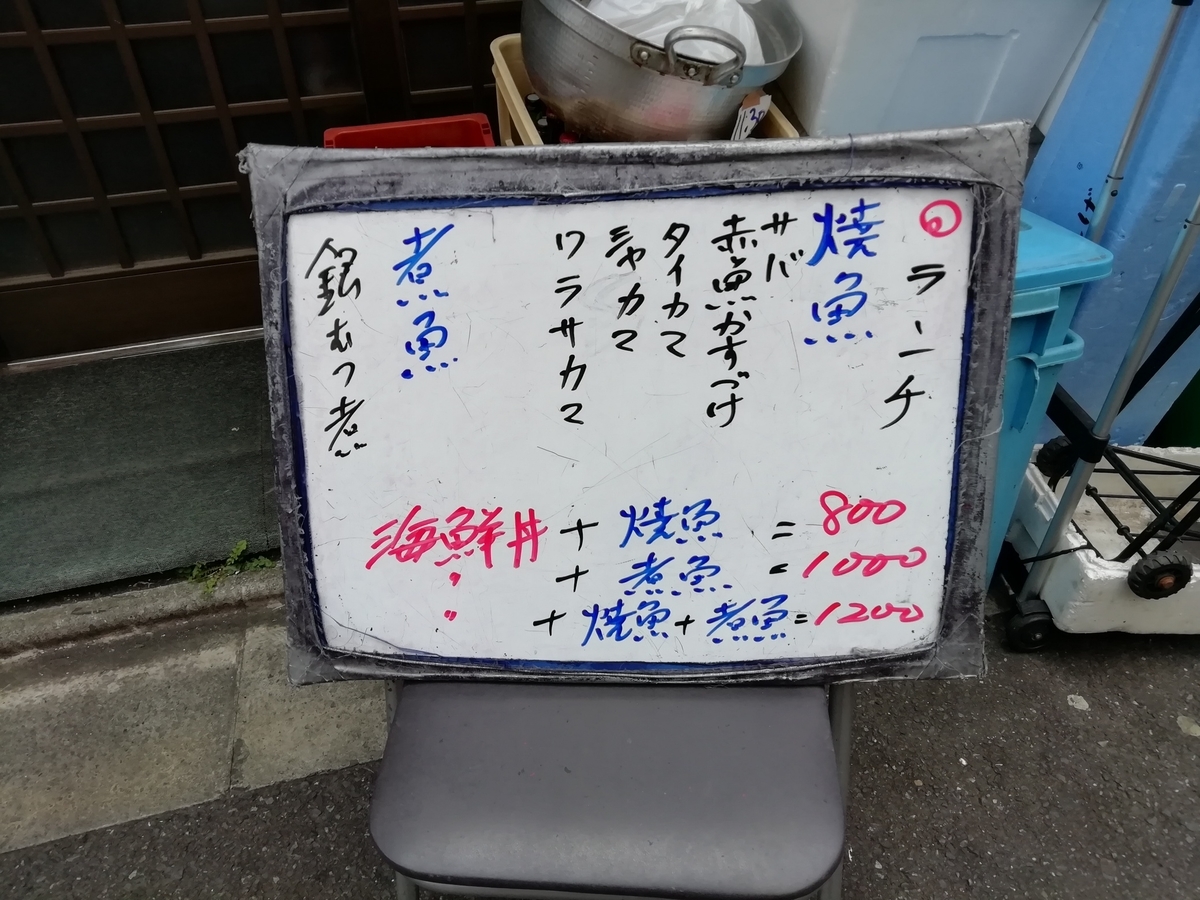 ランチ
焼魚
サバ
赤魚かすづけ
タイカマ
シャカマ
ワラサカマ
煮魚
銀むつ煮
海鮮丼 + 焼魚 = 800
〃 + 煮魚 = 1000
〃 + 焼魚 + 煮魚 = 1200
11:30